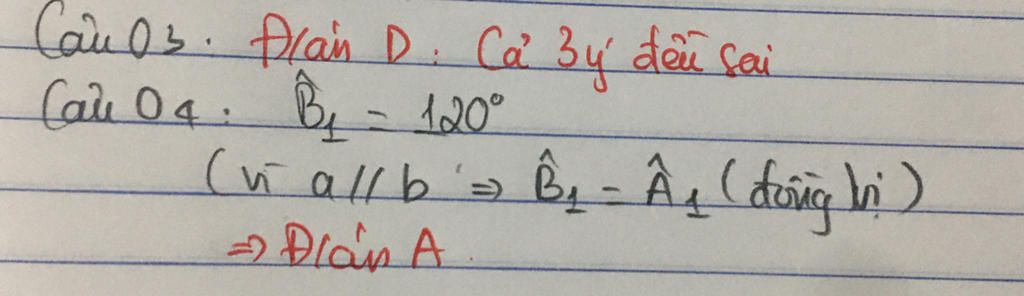 Câu 03. Đ/án D: Cả 3 ý đều sai
Câu 04: B̂₁ = 120°
(vì a // b ⇒ B̂₁ = Â₁ (đồng vị)
⇒ Đ/án A.